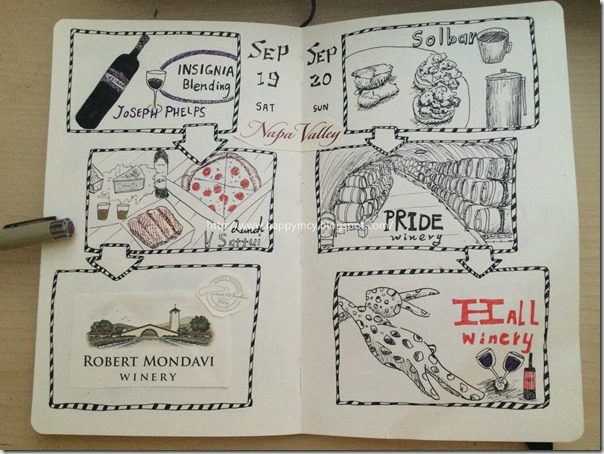 SEP
19
SAT
INSIGNIA
Blending
JOSEPH PHELPS
Lunch
V Sattui
ROBERT MONDAVI
WINERY
SEP
20
SUN
Napa Valley
Solbar
PRIDE
winery
HAll
winery
http://www.happymcy.blogspot.com/